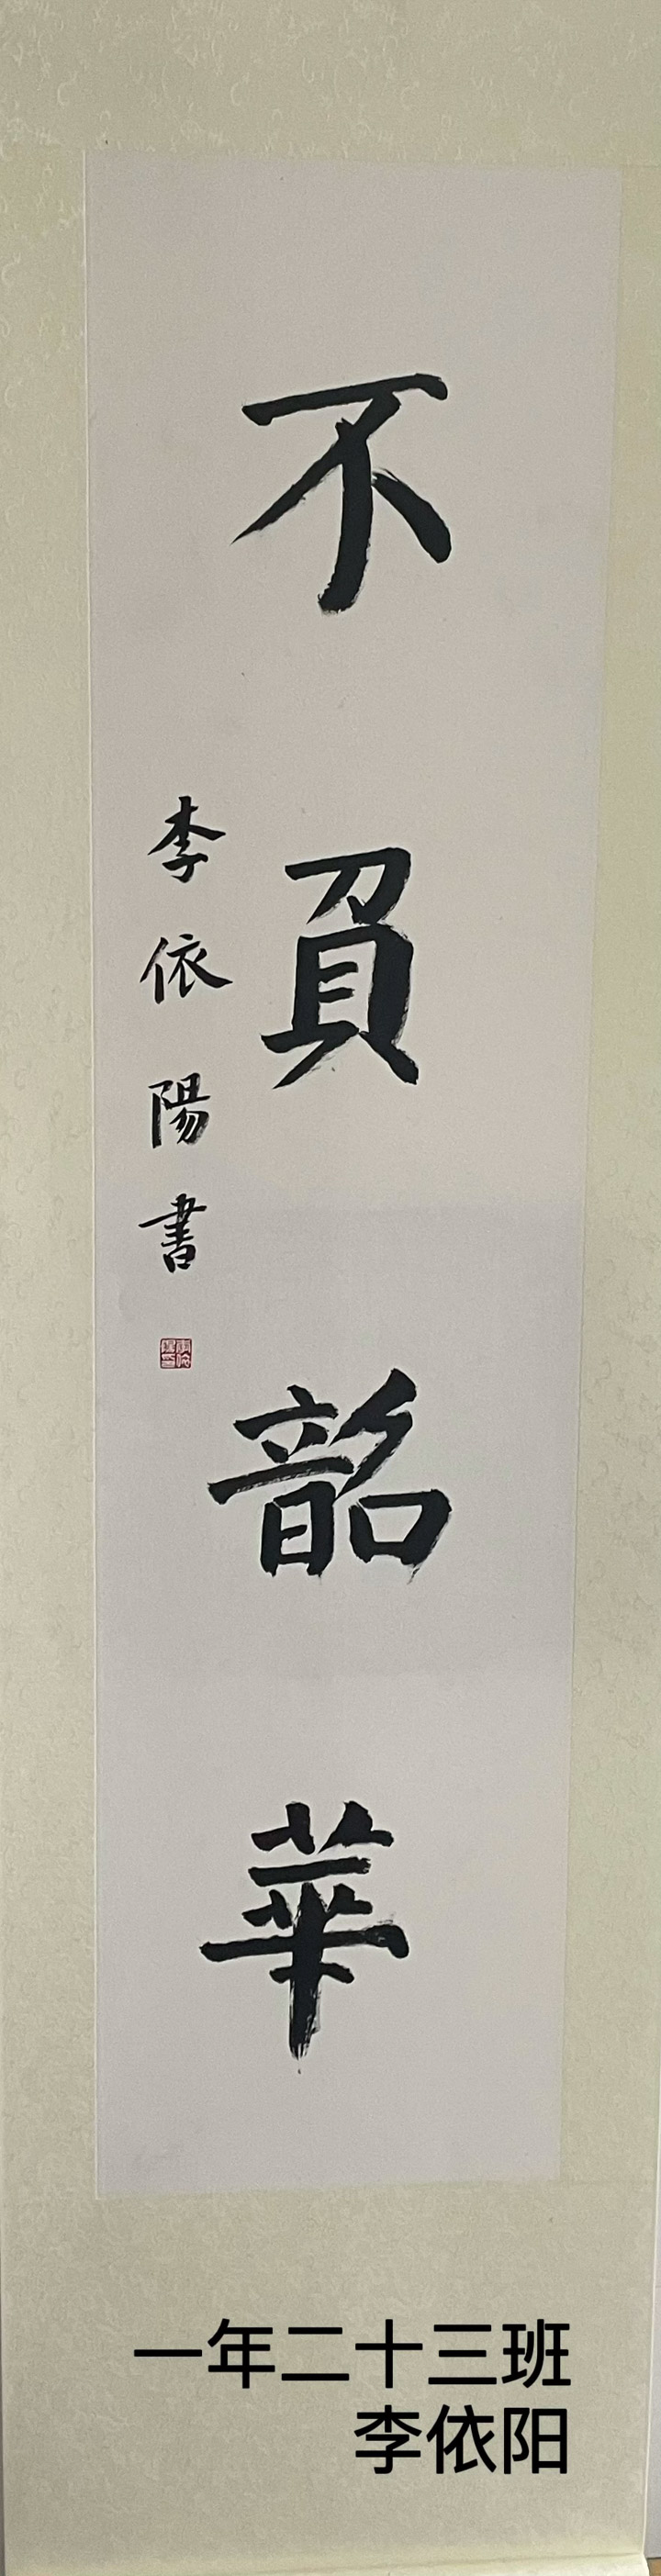 不負韶華
李依陽書
一年二十三班
李依阳